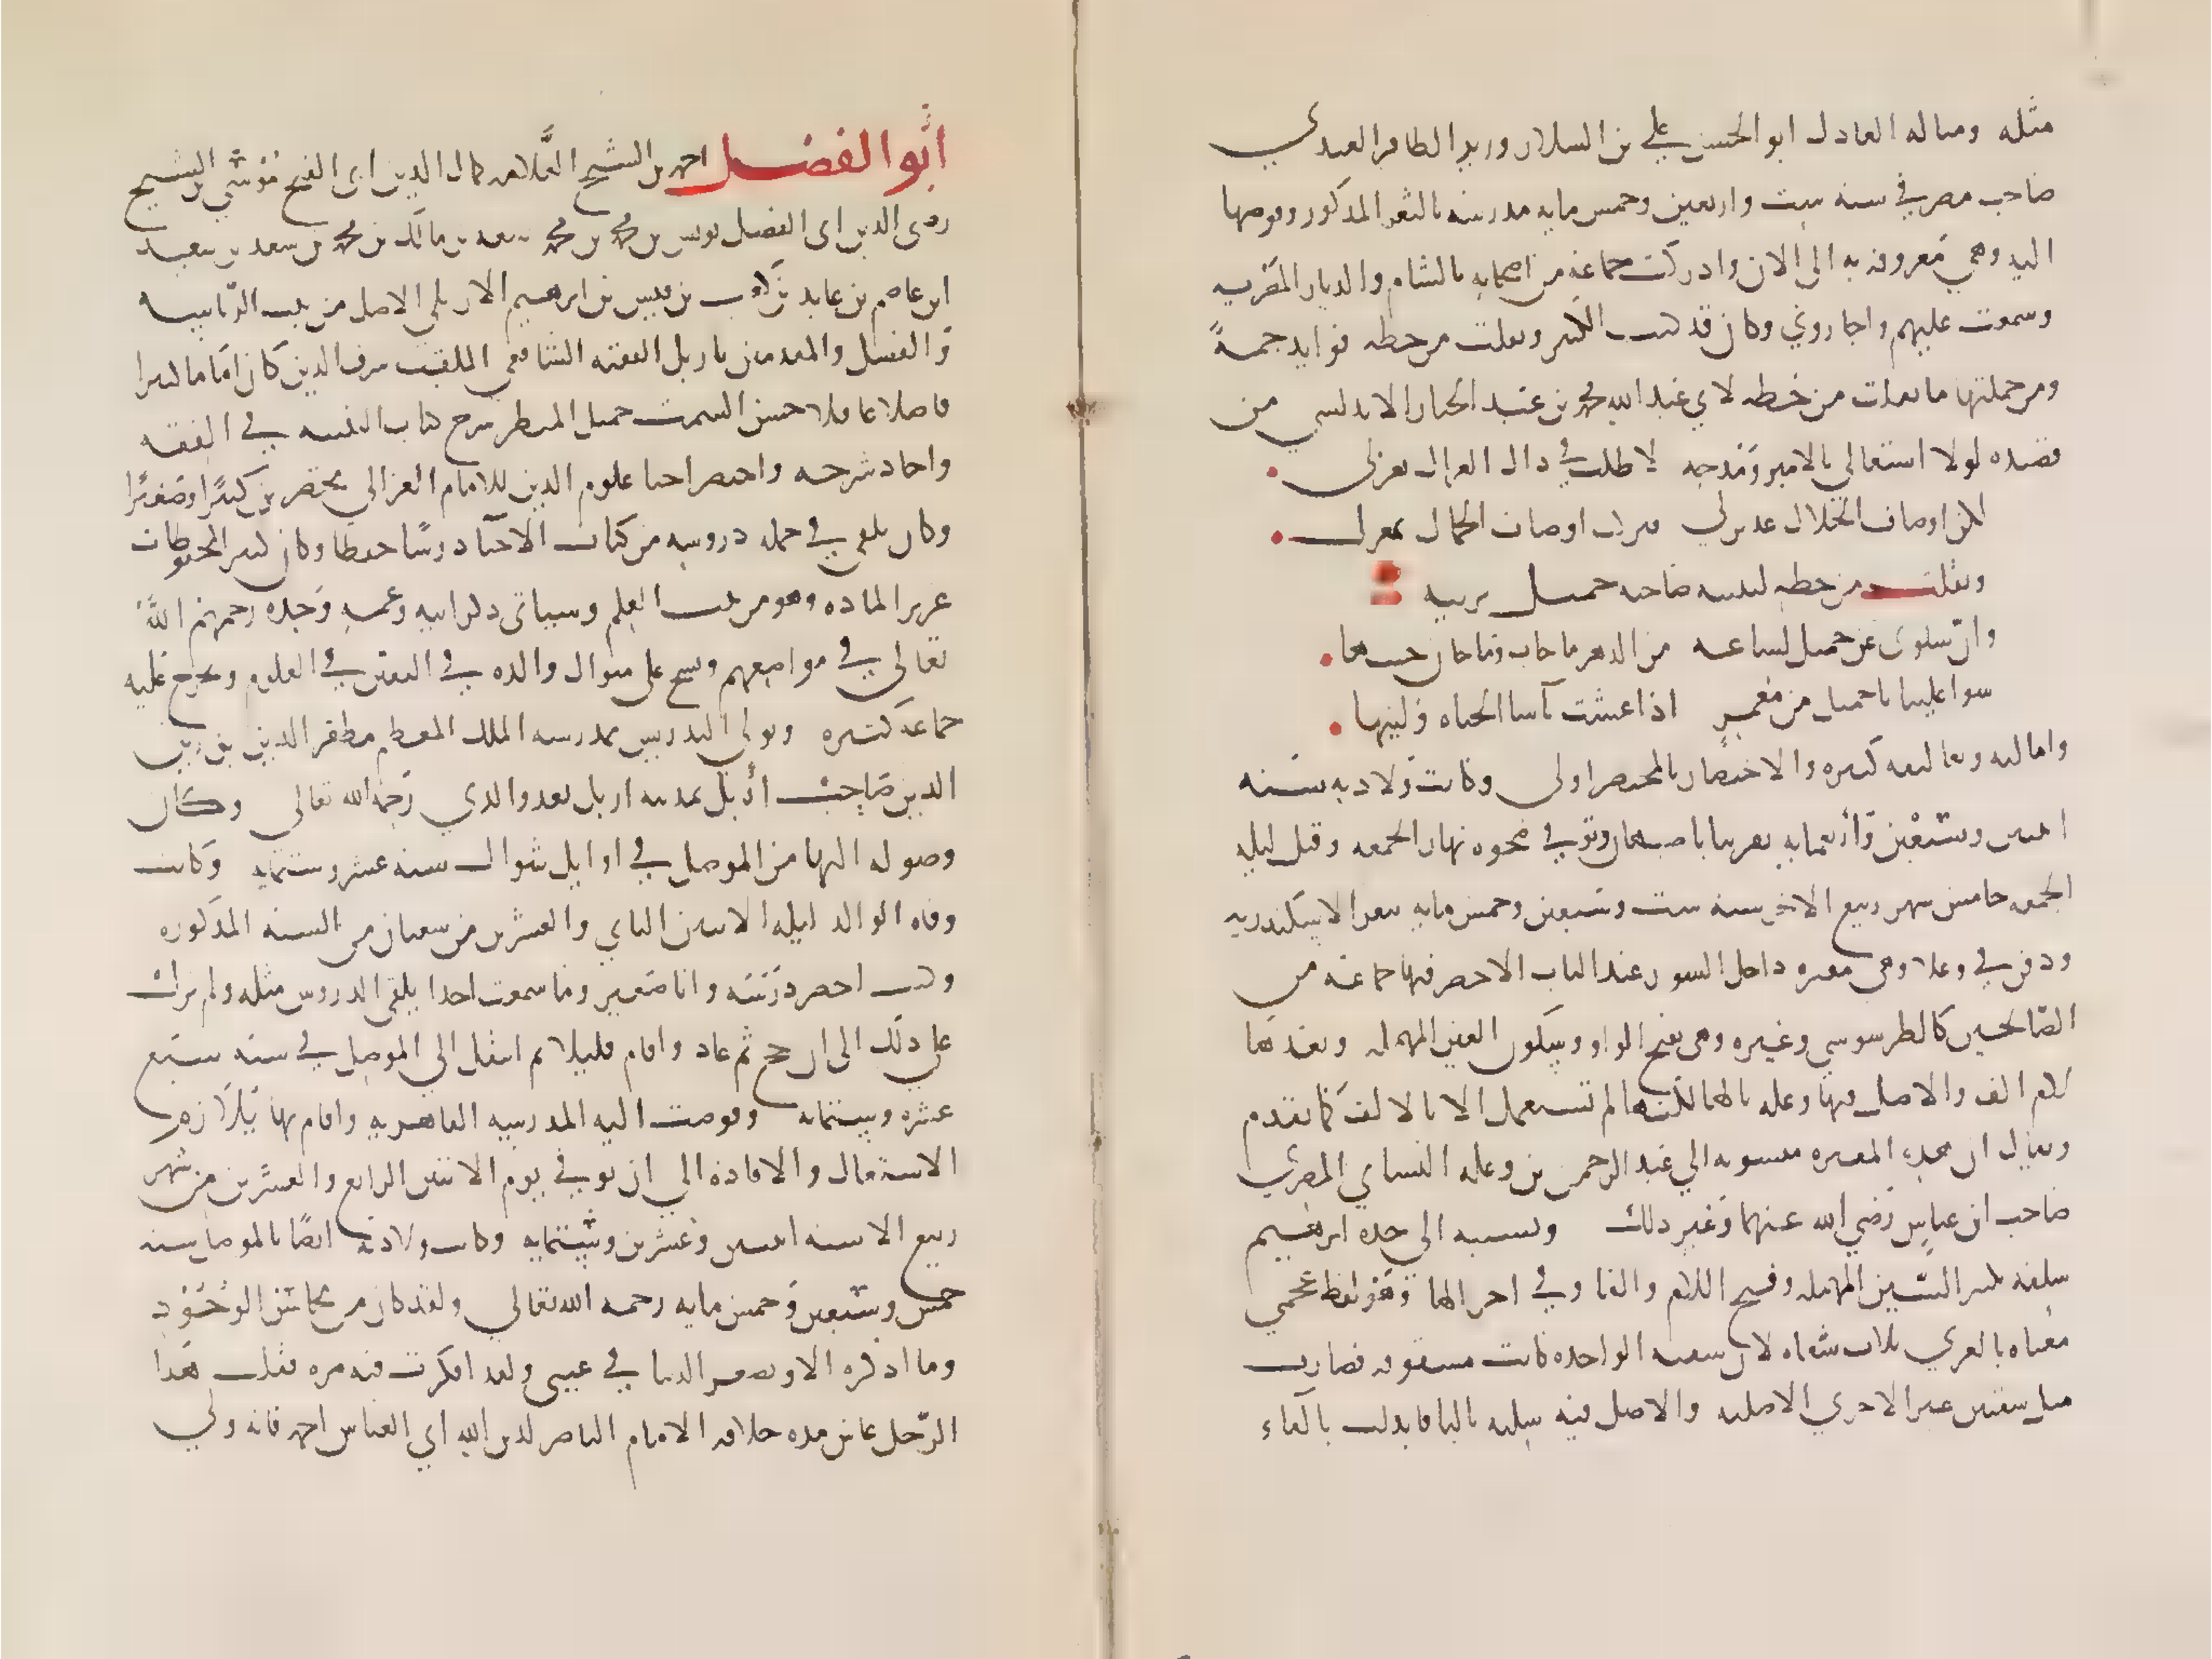 مثله وبنا له العادل ابو الحسن علي بن السلار وزير الظافر العبيدي
صاحب مصر في سنه ست واربعين وخمس مايه مدرسه بالثغر المذكور وفوضها
اليه وهي معروفه به الى الان وادركت جماعه من اصحابه بالشام والديار المصريه
وسمعت عليهم واجازوني وكان قد كتب الكثير ونقلت من خطه فوايد جمةً
ومن جملتها ما نقلت من خطه لابي عبد الله محمد بن عبد الجبار الاندلسي من
قصيده لولا اشتغالي بالامير ومدحه لاطلت في ذاك الغزال تغزلي
لكن اوصاف الجلال عذبن لي فتركت اوصاف الجمال بمعزل
ونقلت من خطه لبثينه صاحبه جميل ترثيه
وان سلوى عن جميل لساعه من الدهر ما حانت وما حان حينها
سوا علينا يا جميل بن معمر اذا عشت باسا الحياه ولينها
واماليه وتعاليقه كثيره والاختصار بالمختصر اولى وكانت ولادته سنه
اثنين وسبعين وأربعمايه تقريبا باصبهان وتوفي ضحوه نهار الجمعه وقيل ليله
الجمعه خامس شهر ربيع الاخر سنه ست وسبعين وخمس مايه بثغر الاسكندريه
ودفن في وعلا وهي مقبره داخل السور عند الباب الاخضر فيها جماعه من
الصالحين كالطرسوسي وغيره وهي بفتح الواو وسكون العين المهمله وبعدها
لام الف والاصل فيها وعله بالها لكنها لم تستعمل الا بالالف كما تقدم
ويقال ان هذه المقبره منسوبه الي عبد الرحمن بن وعله السباي المصري
صاحب ابن عباس رضي الله عنهما وغير ذلك ونسبه الى جده ابرهيم
سلفه بكسر السين المهمله وفتح اللام والفا وفي اخر الها وهو لفظ عجمي
معناه بالعربي ثلاث شفاه لان شفته الواحده كانت مشقوقه فصارت
مثل شفتين غير الاخرى الاصليه والاصل فيه سلبه بالبا فابدلت بالفاء
أبو الفضل احمد بن الشيخ العلامه كمال الدين ابى الفتح موسى بن الشيخ
رضى الدين ابى الفضل يونس بن محمد بن محمد بن سعد بن مالك بن محمد بن سعد بن سعيد
ابن عاصم بن عايد بن كعب بن قيس بن ابرهيم الاربلي الاصل من بيت الرياسه
والفضل والمقدمين باربل الفقيه الشافعي الملقب شرف الدين كان اماما كبيرا
فاضلا عاقلا حسن السمت جميل المنظر شرح كتاب التنبيه في الفقه
واجاد شرحه واختصر احيا علوم الدين للامام الغزالي مختصرين كبيرًا وصغيرًا
وكان يلقي في جمله دروسه من كتاب الاحيا درسًا حفظا وكان كثير المحفوظات
غزير الماده وهو من بيت العلم وسياتى ذكر ابيه وعمه وجده رحمهم الله
تعالى في مواضعهم ونسج على منوال والده في التفنن في العلوم وتخرج عليه
جماعه كثيره وتولى التدريس بمدرسه الملك المعظم مظفر الدين بن زين
الدين صاحب أربل بمدينه اربل بعد والدي رحمه الله تعالى وكان
وصوله اليها من الموصل في اوايل شوال سنه عشر وستمايه وكانت
وفاه الوالد ليله الاثنين الثاني والعشرين من شعبان من السنه المذكوره
وكنت احضر درسه وانا صغير وما سمعت احدا يلقى الدروس مثله ولم يزل
على ذلك الى ان حج ثم عاد واقام قليلا ثم انتقل الي الموصل في سنه سبع
عشره وستمايه وفوضت اليه المدرسه القاهريه واقام بها يلازم
الاشتغال والافاده الي ان توفي يوم الاثنين الرابع والعشرين من شهر
ربيع الاخر سنه اثنين وعشرين وستمايه وكانت ولادته ايضًا بالموصل سنه
خمس وسبعين وخمس مايه رحمه الله تعالى ولقد كان من محاسن الوجود
وما اذكره الا وتصغر الدنيا في عيني ولقد افكرت فيه مره فقلت هذا
الرجل عاش مده خلافه الامام الناصر لدين الله ابي العباس احمد فانه ولي